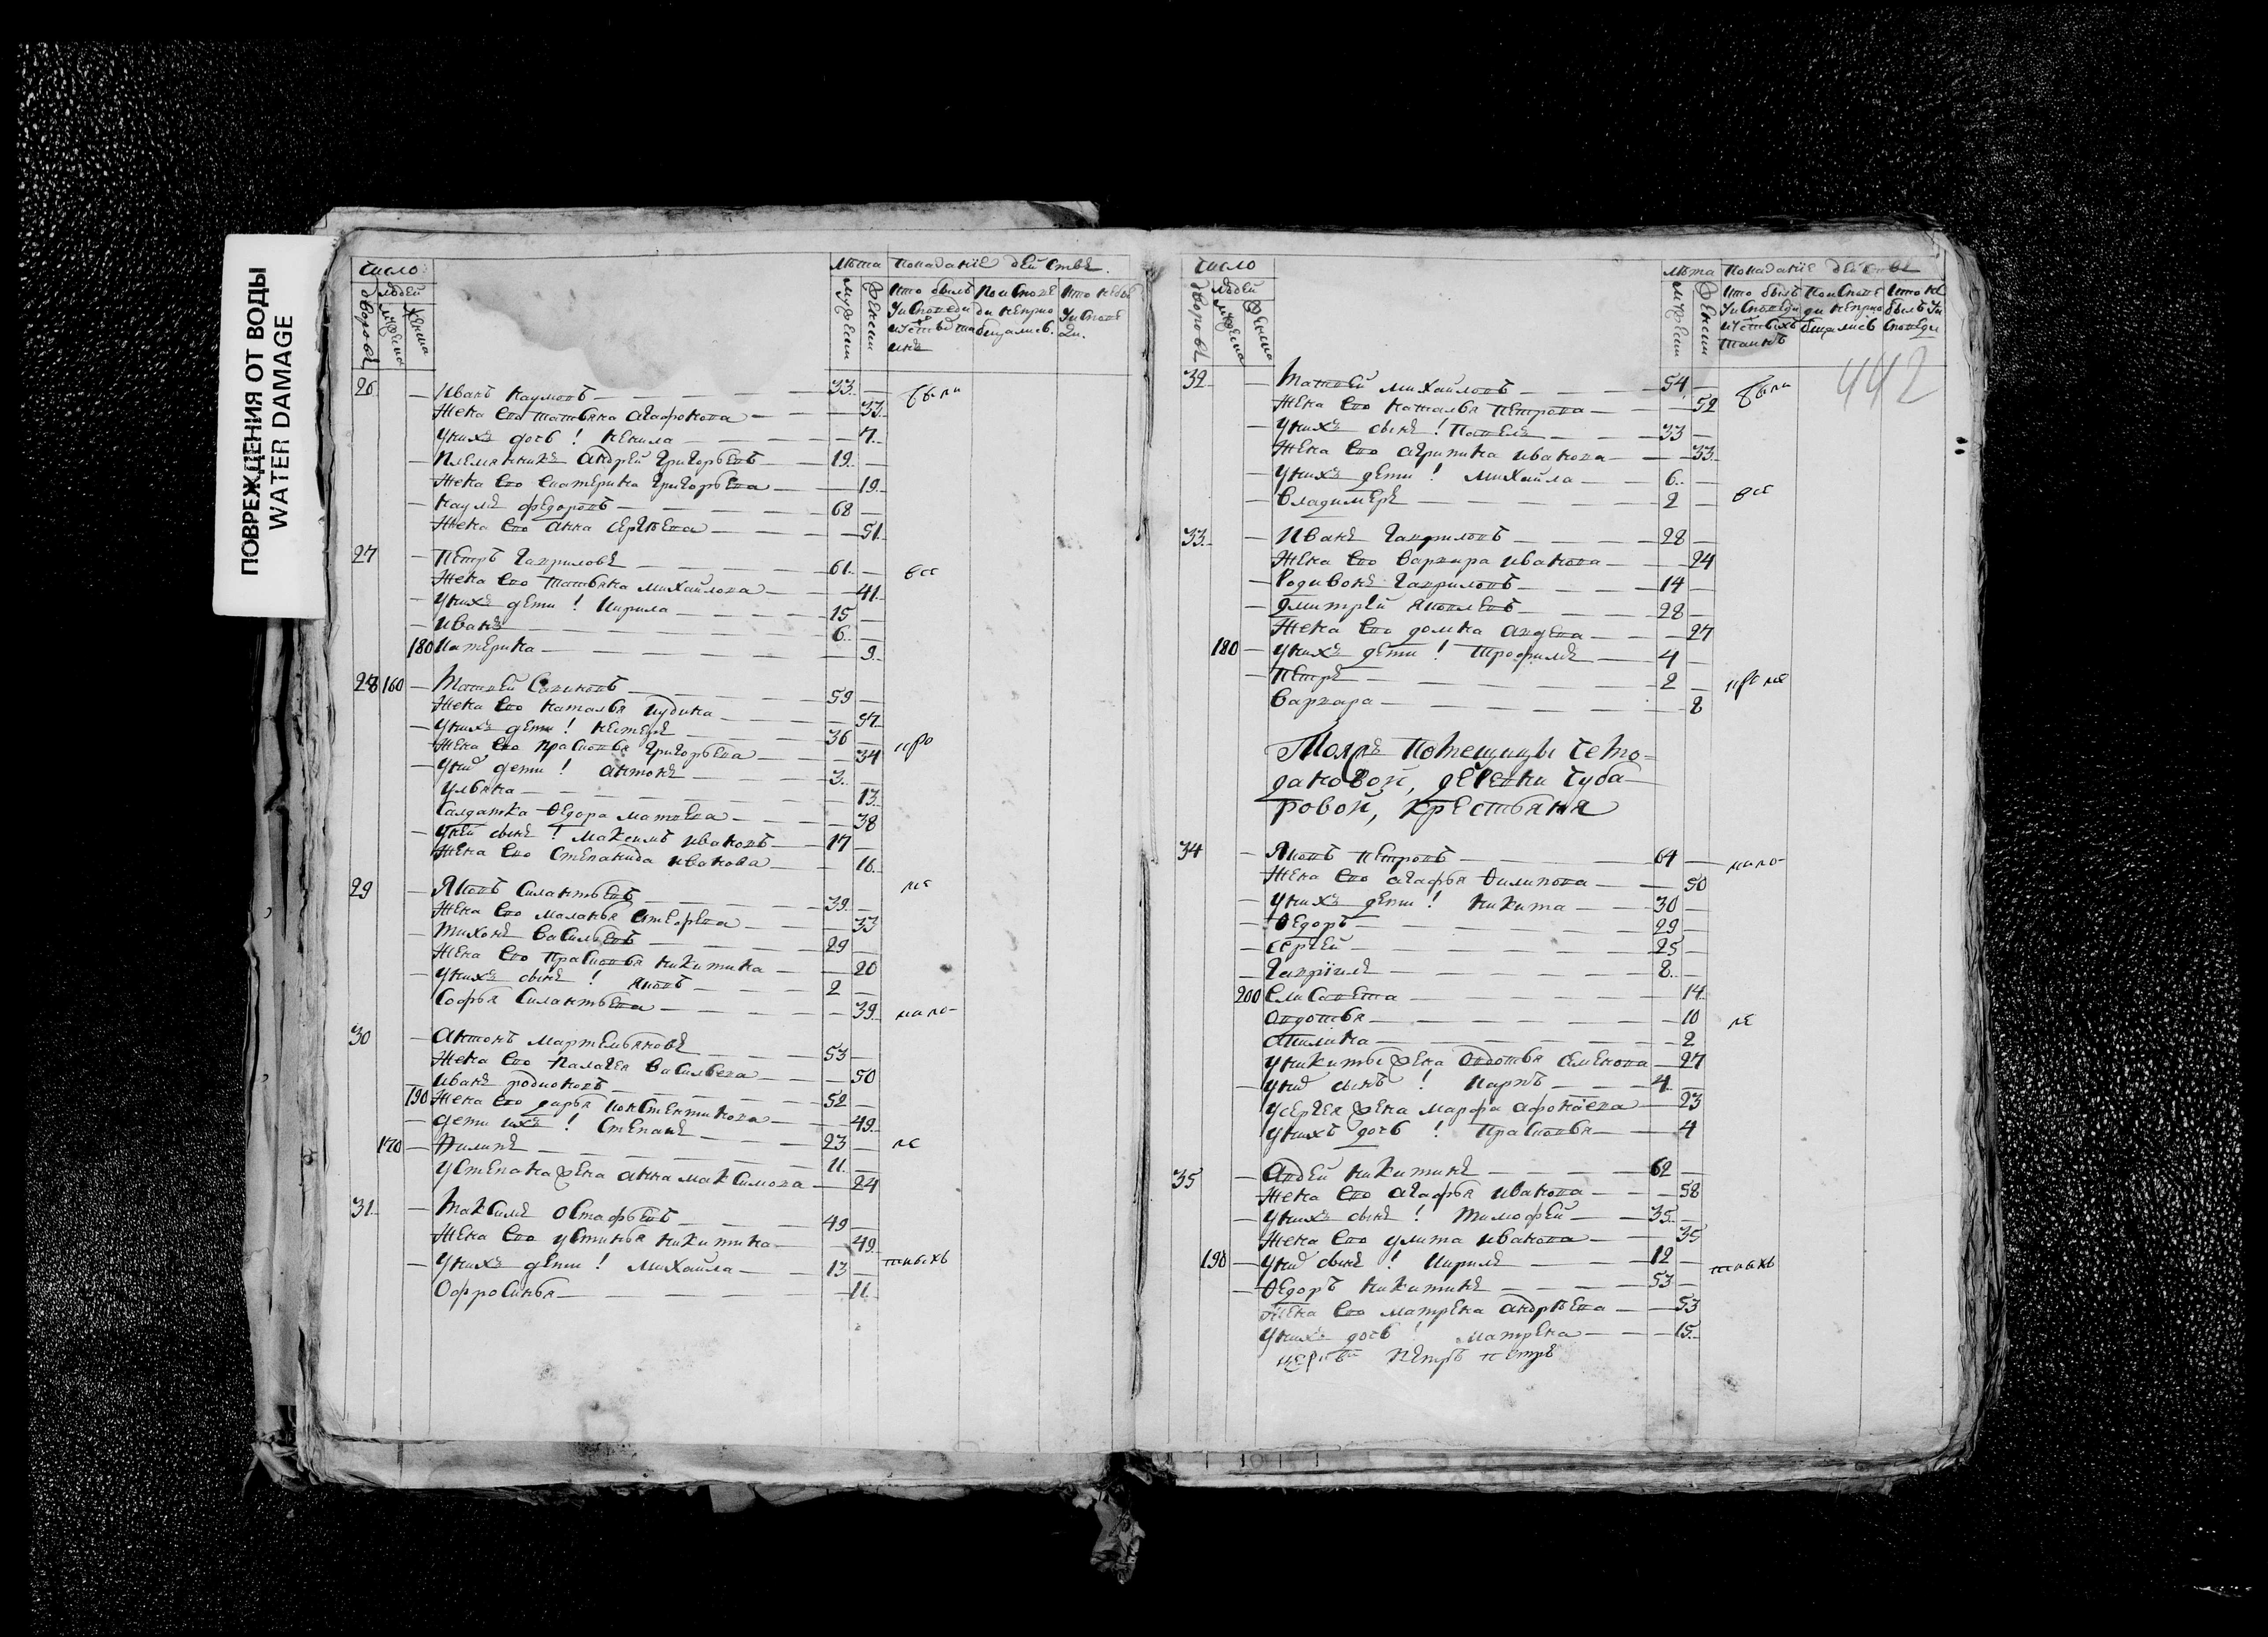 ПОВРЕЖДЕНИЯ ОТ ВОДЫ
WATER DAMAGE
число
людей
дворовъ
мужеска
женска
лѣта
мужеска
женска
показанїе дѣйствъ.
26 Иванъ Наумовъ 33 были
Жена его татьяна агафонова 33
у нихъ дочь! Ненила 7
племянникъ андрей григорьевъ 19
Жена его екатерина григорьева 19
Наумъ федоровъ 68
Жена его анна сергѣева 51
27 Петръ гавриловъ 61 все
Жена его татьяна михайлова 41
у нихъ дети! кирила 15
иванъ 6
180 катерина 9
28 160 Матвей 59
Жена его наталья юдина 57
у нихъ дети! нестеръ 36
Жена его прасковья григорьева 34 кро
у них дети! антонъ 3
ульяна 13
Салдатка Ѳедора матвеева 38
у ней сынъ! максимъ ивановъ 17
Жена его степанида иванова 16
29 Яковъ силантьевъ 39 ме
Жена его маланья 33
Тихонъ васильевъ 29
Жена его прасковья никитина 20
у нихъ сынъ! яковъ 2
Софья силантьева 39 мало-
30 антонъ мартемьяновъ 53
Жена его палагея васильева 50
иванъ родионовъ 52
190 Жена его дарья констентинова 49
дети ихъ! степанъ 23 ле
170 Филипъ 11
у степана жена анна максимова 24
31 Максимъ остафьевъ 49
Жена его устинья никитина 49
у нихъ дети! михайла 13 тныхъ
Офросинья 11
число
людей
дворовъ
мужеска
женска
лѣта
мужеска
женска
показанїе дѣйствъ
442
32 Матвей михайловъ 54 были
Жена его наталья петрова 52
у нихъ сынъ! павелъ 33
Жена его агрипина иванова 33
у нихъ дети! михайла 6
владимеръ 2 все
33 Иванъ гавриловъ 28
Жена его варвара иванова 24
Родивонъ гавриловъ 14
дмитрей яковлевъ 28
Жена его домна авдеева 27
180 у нихъ дети! трофимъ 4
петръ 2 кроме
варвара 8
деревни чуба-
ровой, крестьяня
34 Яковъ петровъ 64 мало-
Жена его агафья Ѳилипова 50
у нихъ дети! никита 30
Ѳедоръ 29
сергей 25
гаврїилъ 8
200 Елисавета 14
авдотья 10 ле
акилина 2
у никиты жена авдотья семенова 27
у них сынъ! карпъ 4
у сергея жена марфа афонасева 23
у нихъ дочь! прасковья 4
35 авдей никитинъ 62
Жена его агафья иванова 58
у нихъ сынъ! тимофей 35
Жена его улита иванова 35
190 у них сынъ! кирилъ 12 тныхъ
Ѳедоръ никитинъ 53
Жена его матрена андрѣева 53
у нихъ дочь! матрена 15
петръ петръ